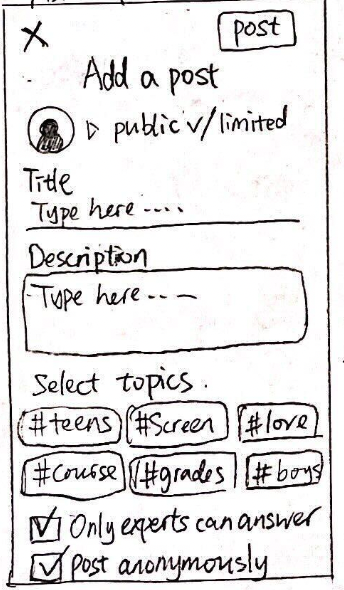 X post
Add a post
▷ public ✓/limited
Title
Type here ....
Description
Type here ---
Select topics.
#teens #Screen #love
#course #grades #boys
Only experts can answer
Post anonymously